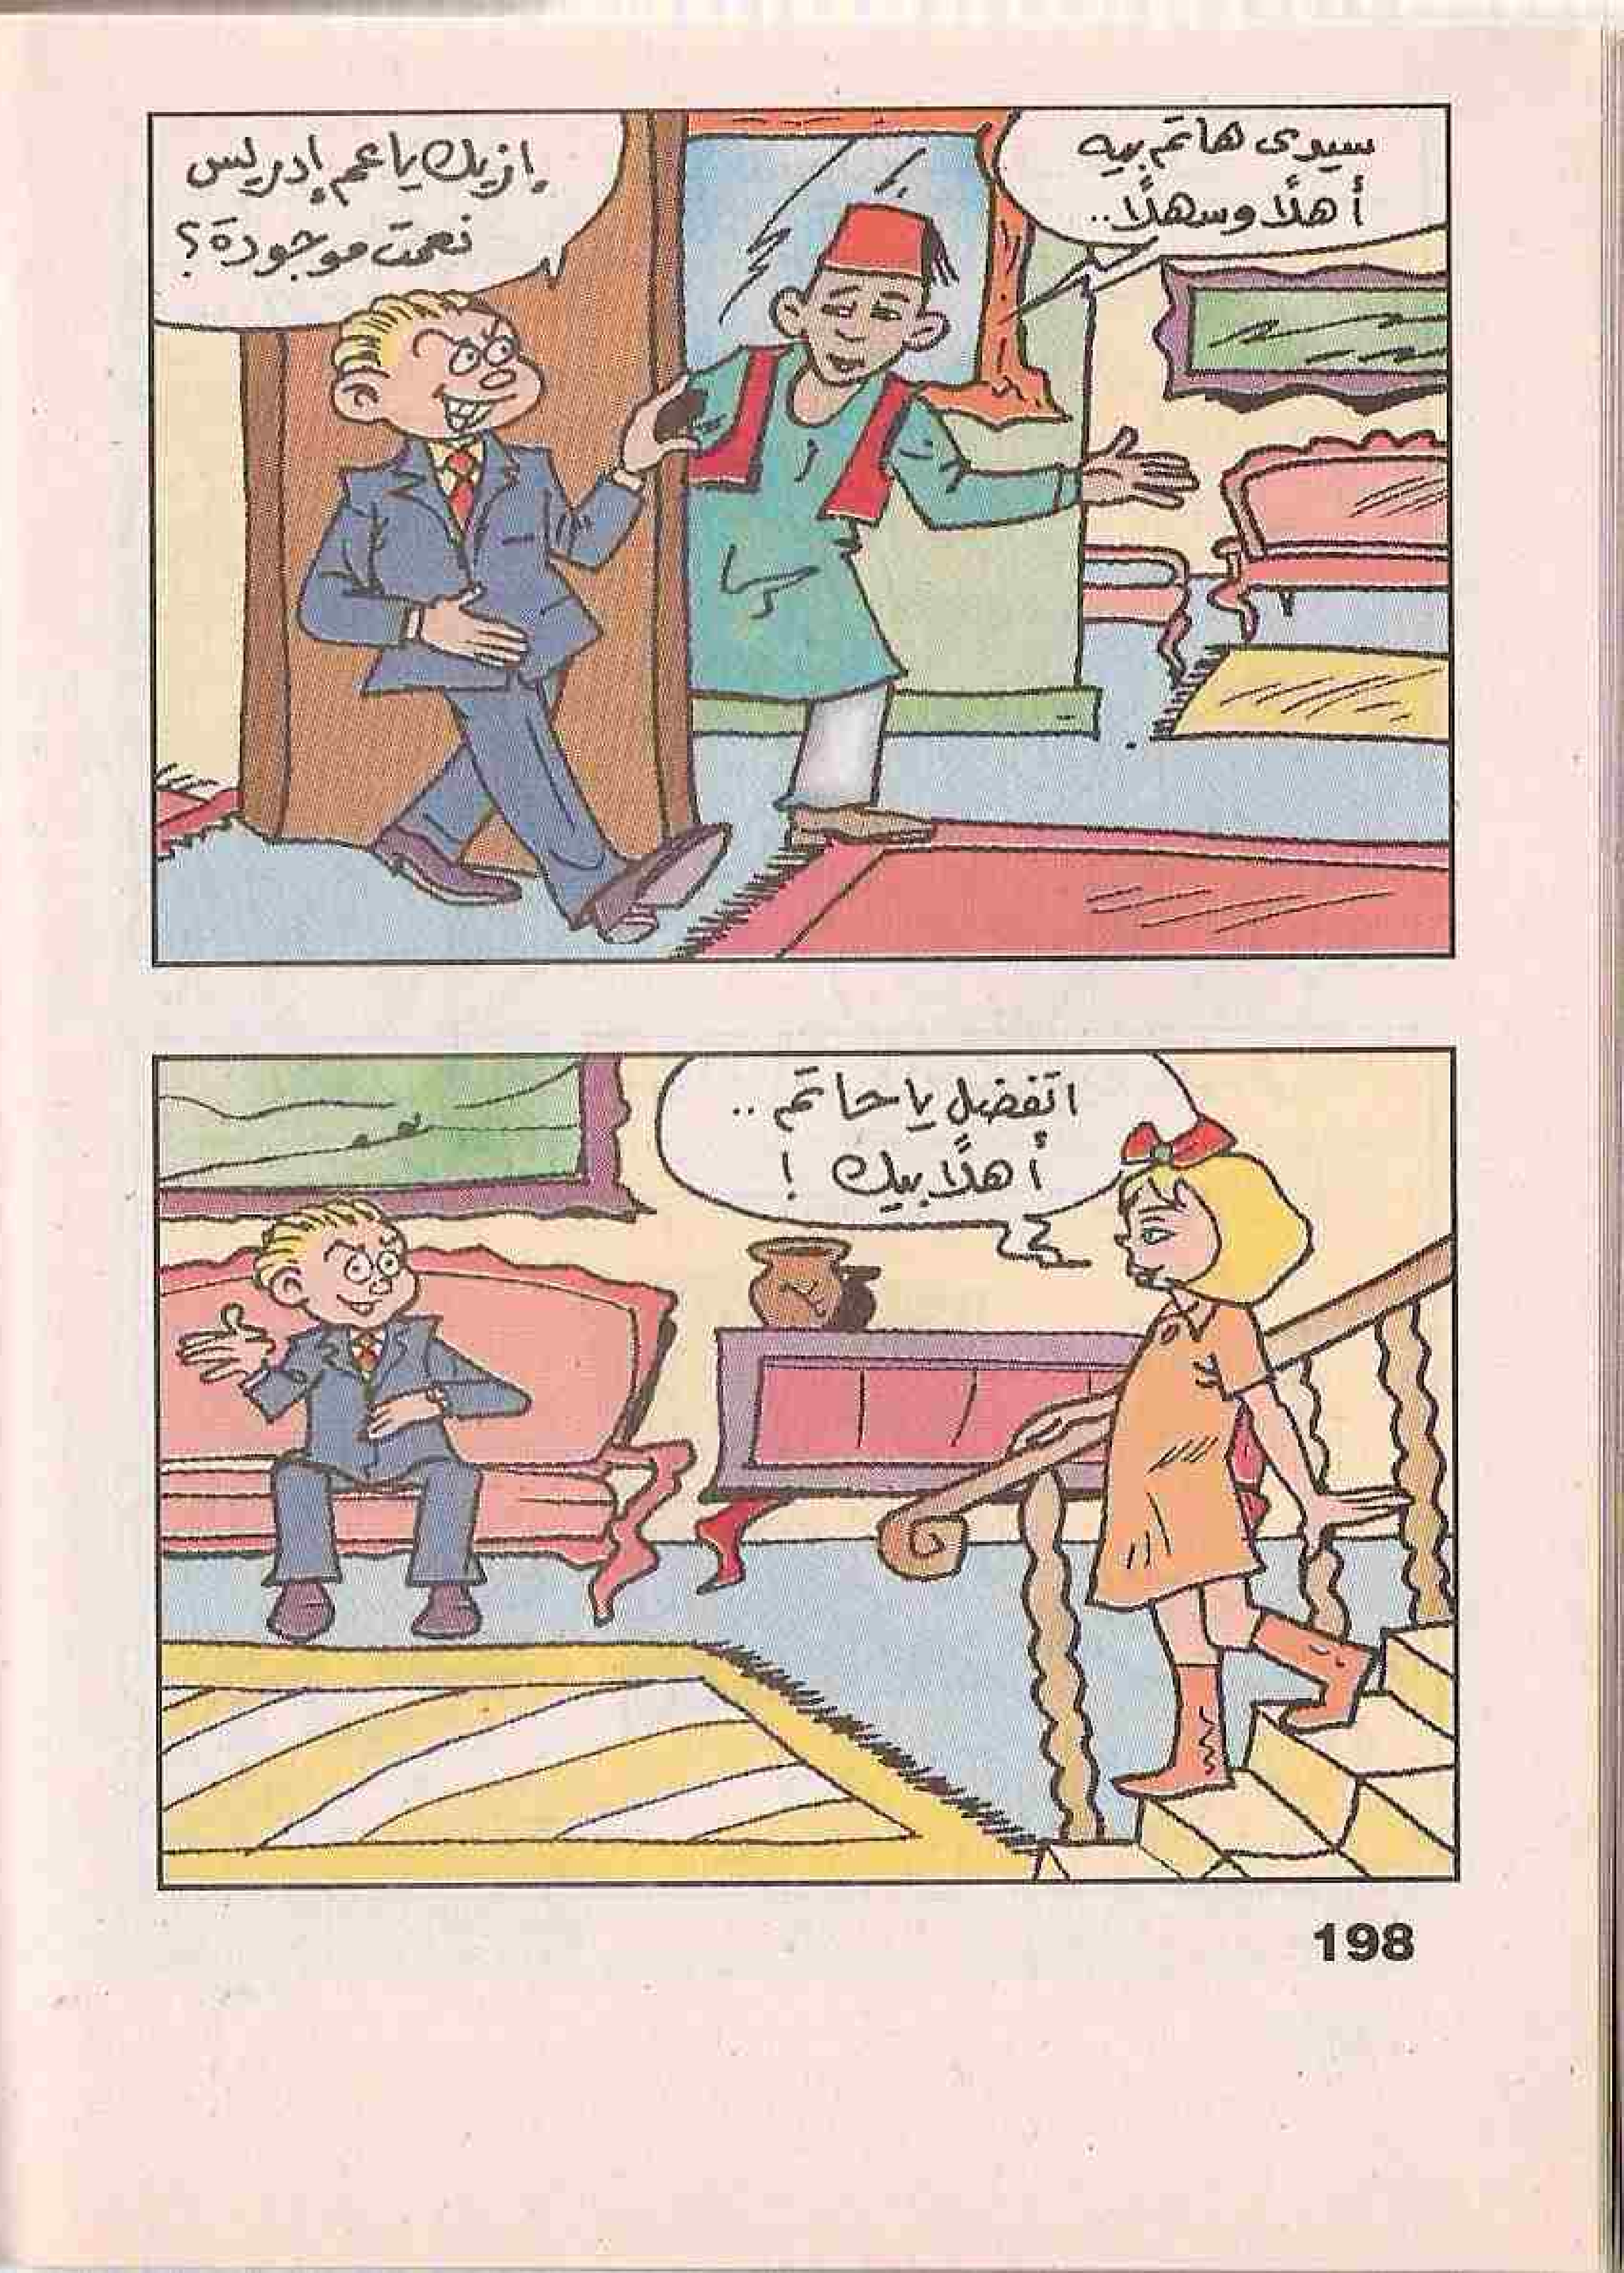 سيدى هاتم بيه
أهلًا وسهلًا..
إزيك يا عم إدريس
نعمت موجودة؟
اتفضل يا حاتم..
أهلًا بيك !
198